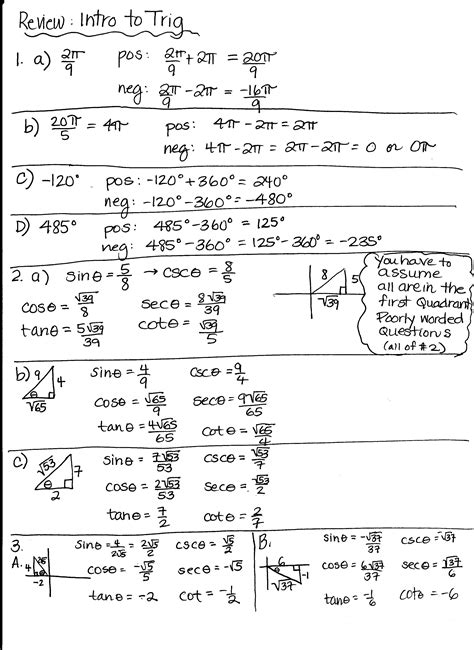 Review: Intro to Trig
1. a) 2π/9 pos: 2π/9 + 2π = 20π/9
neg: 2π/9 - 2π = -16π/9
b) 20π/5 = 4π pos: 4π - 2π = 2π
neg: 4π - 2π = 2π - 2π = 0 or 0π
c) -120° pos: -120° + 360° = 240°
neg: -120° - 360° = -480°
D) 485° pos: 485° - 360° = 125°
neg: 485° - 360° = 125° - 360° = -235°
2. a) sinθ = 5/8 → cscθ = 8/5
cosθ = √39/8 secθ = 8√39/39
tanθ = 5√39/39 cotθ = √39/5
8 5 √39
You have to
assume
all are in the
first Quadrant
Poorly worded
Questions
(all of #2)
b) 9 4 θ √65
sinθ = 4/9 cscθ = 9/4
cosθ = √65/9 secθ = 9√65/65
tanθ = 4√65/65 cotθ = √65/4
c) √53 7 θ 2
sinθ = 7√53/53 cscθ = √53/7
cosθ = 2√53/53 secθ = √53/2
tanθ = 7/2 cotθ = 2/7
3.
A. 4 θ -2
sinθ = 4/2√5 = 2√5/2 cscθ = √5/2
cosθ = -√5/5 secθ = -√5
tanθ = -2 cot = -1/2
B. 6 -1 √37
sinθ = -√37/37 cscθ = -√37
cosθ = 6√37/37 secθ = √37/6
tanθ = -1/6 cotθ = -6